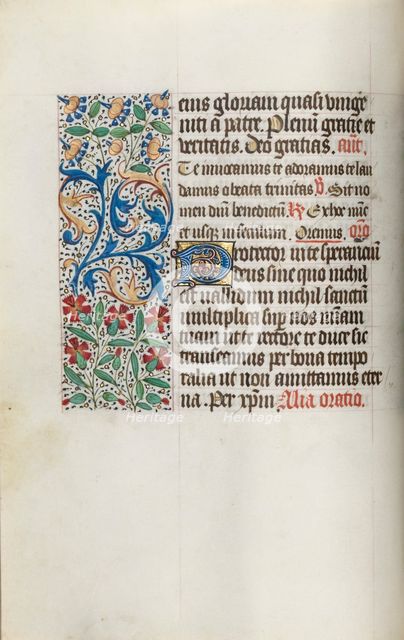 eius gloriam quasi vnige
niti a patre. Plenū gratie et
veritatis. Deo gratias. añt.
Te inuocamus te adoramus te lau
damus o beata trinitas ℣. Sit no
men dñi benedictū ℟ Exhoc nūc
et usq; in seculum. Oremus. oro
Protector in te sperantiū
deus sine quo nichil
est ualidum nichil sanctū
multiplica sup nos miām
tuam ut te rectore te duce sic
transeamus per bona tempo
ralia ut non amittamus eter
na. Per xp̄m Alia oratio.
Heritage Heritage Heritage